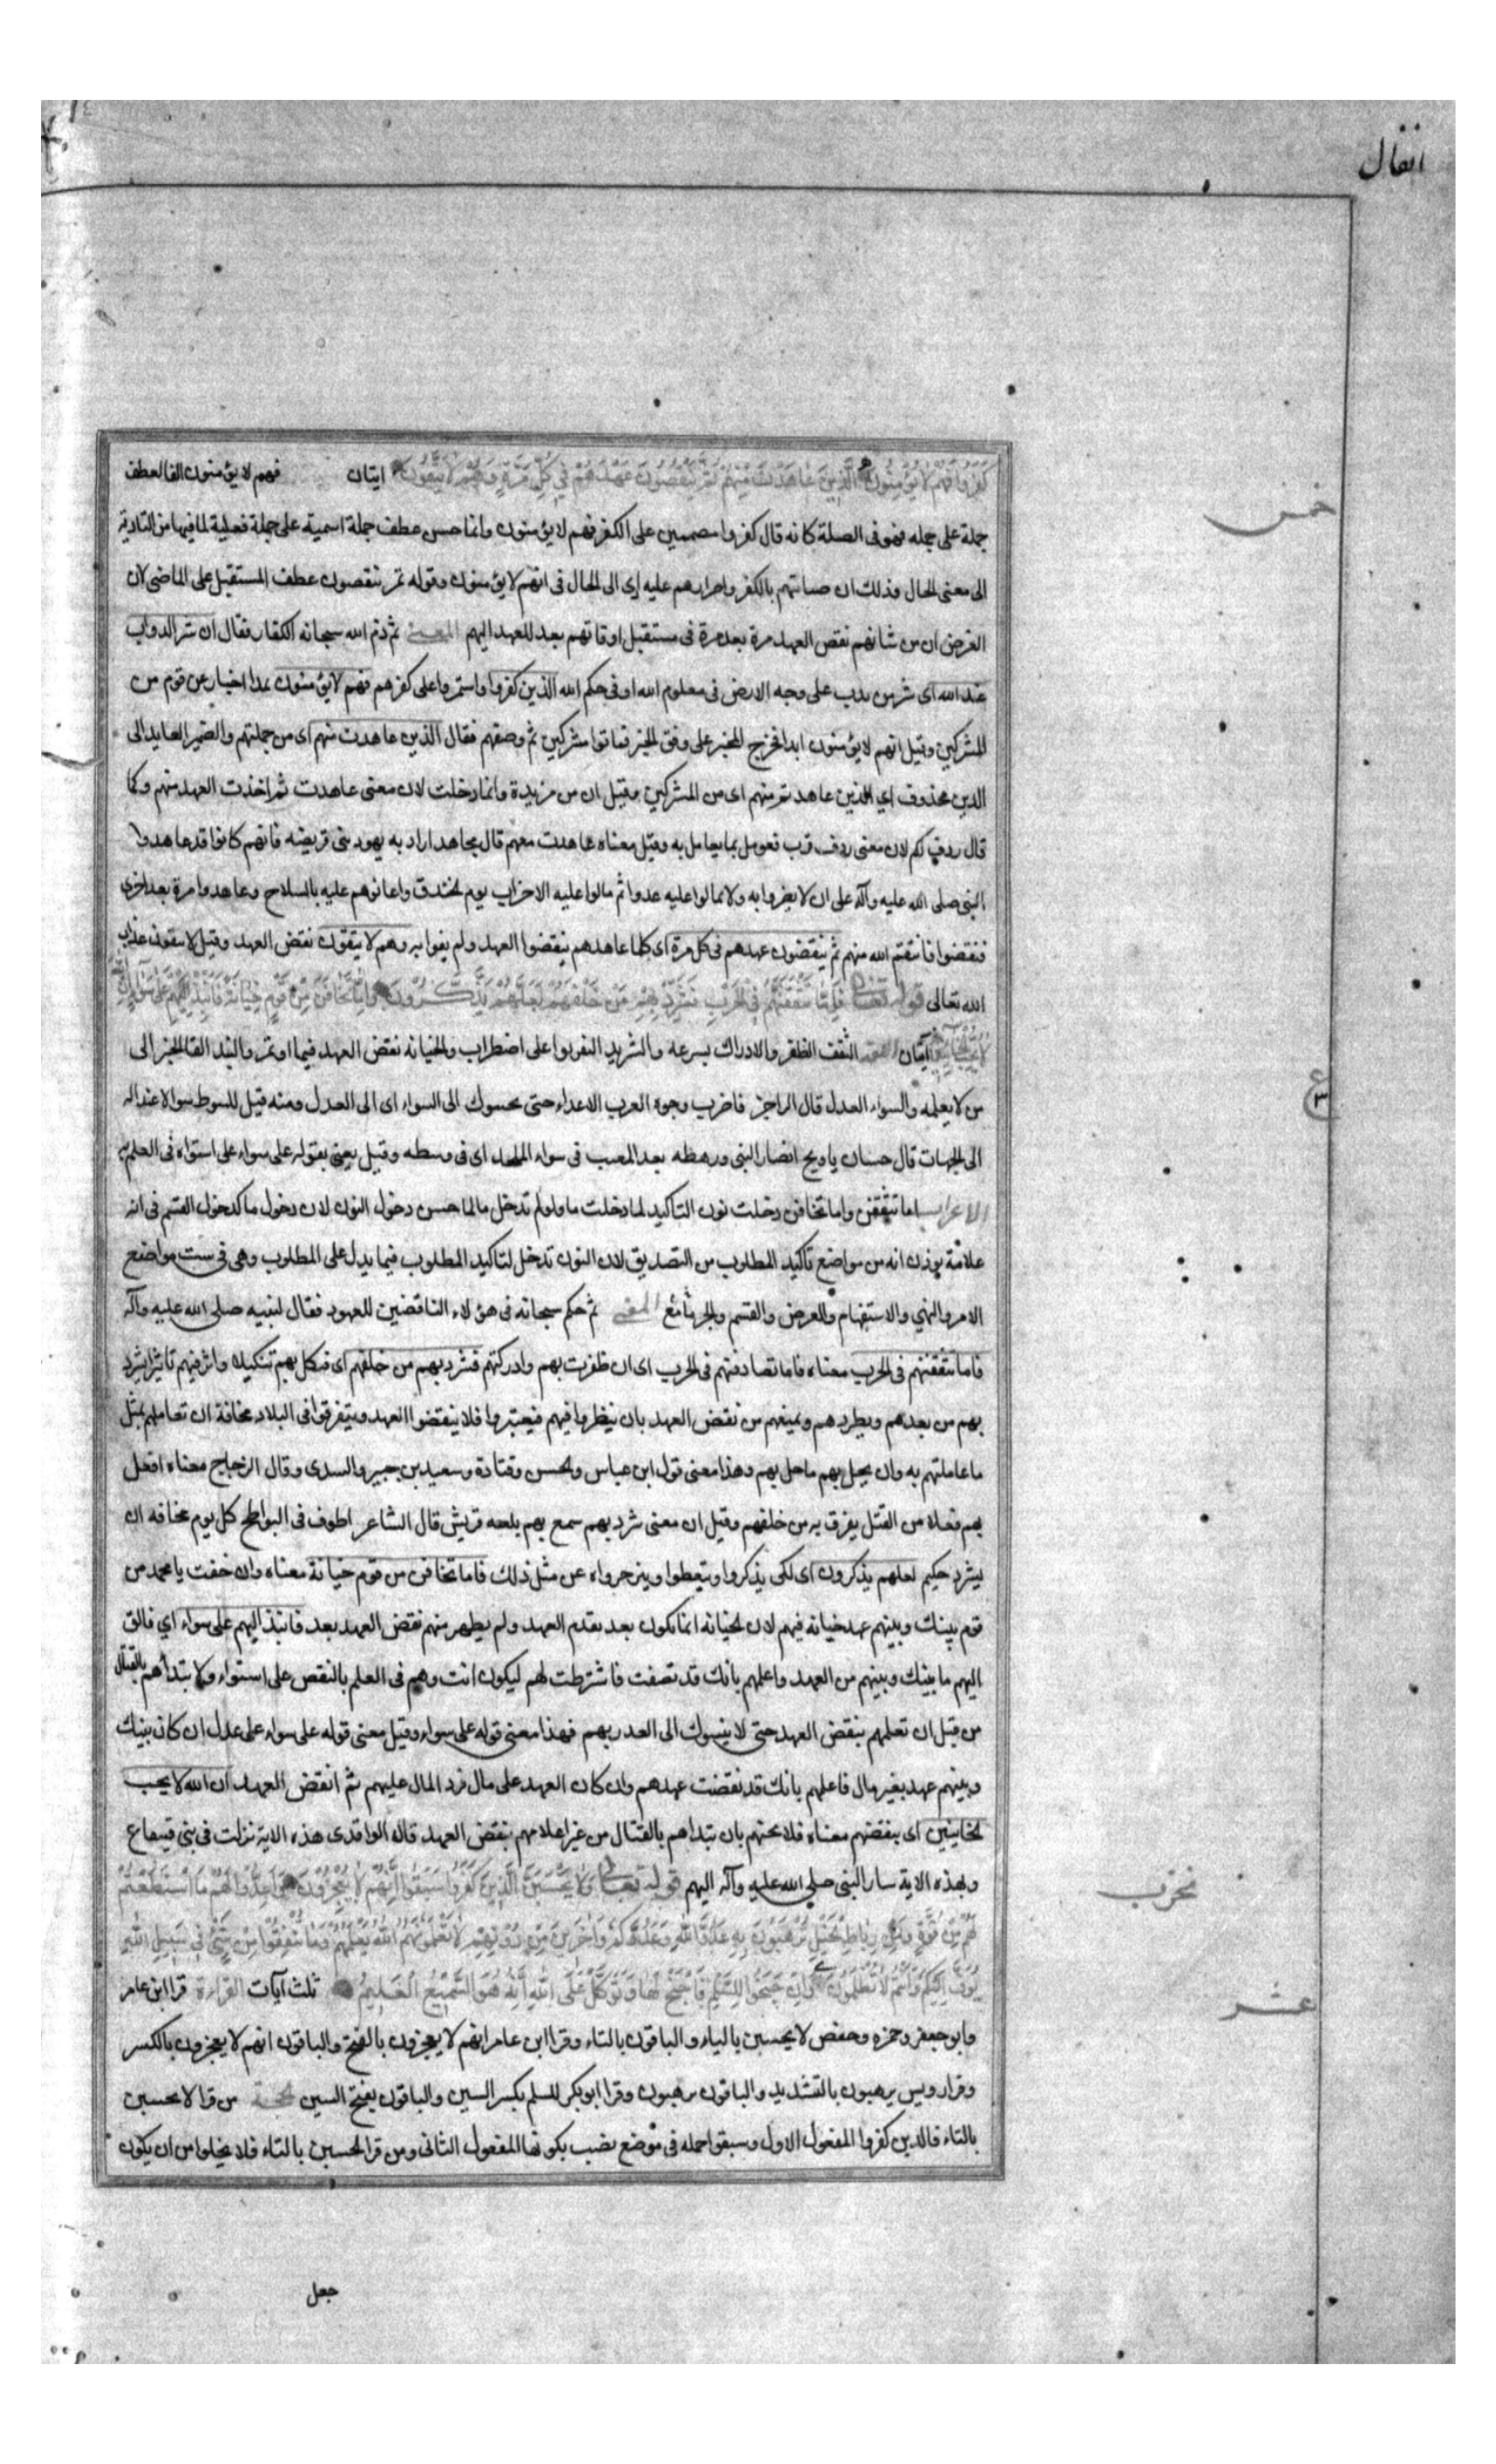 انفال
كَفَرُوا فَهُمْ لَا يُؤْمِنُونَ الَّذِينَ عَاهَدْتَ مِنْهُمْ ثُمَّ يَنْقُضُونَ عَهْدَهُمْ فِي كُلِّ مَرَّةٍ وَهُمْ لَا يَتَّقُونَ ايتان فهم لا يؤمنون الفا لعطف
خمس
جملة على جمله فهو فى الصلة كانه قال كفروا مصممين على الكفر فهم لا يؤمنون وانما حسن عطف جملة اسمية على جملة فعلية لما فيها من التادية
الى معنى الحال وذلك ان صباتهم بالكفر واصرارهم عليه ادى الى الحال فى انهم لا يؤمنون وقوله ثم ينقضون عطف المستقبل على الماضى لان
الغرض ان من شانهم نقض العهد مرة بعد مرة فى مستقبل اوقاتهم بعد العهد اليهم المعنى ثم ذم الله سبحانه الكفار فقال ان شر الدواب
عند الله اى شر من يدب على وجه الارض فى معلوم الله او فى حكم الله الذين كفروا واستمروا على كفرهم فهم لا يؤمنون هذا اخبار عن قوم من
المشركين وقيل انهم لا يؤمنون ابدا فخرج المخبر على وفق الخبر فماتوا مشركين ثم وصفهم فقال الذين عاهدت منهم اى من جملتهم والضمير العايد الى
الذين محذوف اي الذين عاهدتهم منهم اى من المشركين وقيل ان من مزيدة وانما دخلت لان معنى عاهدت ثم اخذت العهد منهم وكما
قال ردف لكم لان معنى ردف قرب فعومل بما يعامل به وقيل معناه عاهدت معهم قال مجاهد اراد به يهود بنى قريضه فانهم كانوا قد عاهدوا
النبى صلى الله عليه وآله على ان لا يضروا به ولا يمالوا عليه عدوا ثم مالوا عليه الاحزاب يوم الخندق واعانوهم عليه بالسلاح وعاهدوا مرة بعد اخرى
فنقضوا فانتقم الله منهم ثم ينقضون عهدهم فى كل مرة اى كلما عاهدهم ينقضوا العهد ولم يفوا به وهم لا يتقون نقض العهد وقيل لا يتقون عذاب
الله تعالى قوله تعالى فَإِمَّا تَثْقَفَنَّهُمْ فِي الْحَرْبِ فَشَرِّدْ بِهِمْ مَنْ خَلْفَهُمْ لَعَلَّهُمْ يَذَّكَّرُونَ وَإِمَّا تَخَافَنَّ مِنْ قَوْمٍ خِيَانَةً فَانْبِذْ إِلَيْهِمْ عَلَى سَوَاءٍ إِنَّ اللَّهَ
لَا يُحِبُّ الْخَائِنِينَ آيتان اللغه الثقف الظفر والادراك بسرعه والتشريد التفريق على اضطراب والخيانه نقض العهد فيما اوتمن والنبذ القا الخبر الى
من لا يعلمه والسواء العدل قال الراجز فاضرب وجوه الغرب الاعداء حتى يحسوك الى السواء اى الى العدل ومنه قيل للوسط سوا لاعتداله
ع ٣
الى الجهات قال حسان يا ويح انصار النبى ورهطه بعد المغيب فى سواء الملحد اى فى وسطه وقيل يعنى بقوله على سواء على استواء فى العلم به
الاعراب اما تثقفن واما تخافن دخلت نون التاكيد لما دخلت ما ولو لم تدخل ما لما حسن دخول النون لان دخول ما كدخول القسم فى انه
علامة يوذن انه من مواضع تاكيد المطلوب من التصديق لان النون تدخل لتاكيد المطلوب فيما يدل على المطلوب وهى فى ست مواضع
الامر والنهي والاستفهام والعرض والقسم والجزا مع ما المعنى ثم حكم سبحانه فى هؤلاء الناقضين للعهود فقال لنبيه صلى الله عليه وآله
فاما تثقفنهم فى الحرب معناه فاما تصادفنهم فى الحرب اى ان ظفرت بهم وادركتهم فشرد بهم من خلفهم اى فنكل بهم تنكيلا واثر فيهم تاثيرا يشرد
بهم من بعدهم ويطردهم ويمنعهم من نقض العهد بان ينظروا فيهم فيعتبروا فلا ينقضوا العهد ويتفرقوا فى البلاد مخافة ان تعاملهم بمثل
ما عاملتهم به وان يحل بهم ما حل بهم وهذا معنى قول ابن عباس والحسن وقتادة وسعيد بن جبير والسدى وقال الزجاج معناه افعل
بهم فعلا من القتل يفرق به من خلفهم وقيل ان معنى شرد بهم سمع بهم بلغه قريش قال الشاعر اطوف فى البواطح كل يوم مخافه ان
يشرد حكيم لعلهم يذكرون اى لكى يذكروا ويتعظوا وينزجروا عن مثل ذلك فاما تخافن من قوم خيانة معناه وان خفت يا محمد من
قوم بينك وبينهم عهد خيانه فيهم لان الخيانه انما تكون بعد تقدم العهد ولم يظهر منهم نقض العهد بعد فانبذ اليهم على سواء اي فالق
اليهم ما بينك وبينهم من العهد واعلمهم بانك قد نقضت ما شرطت لهم ليكون انت وهم فى العلم بالنقض على استواء ولا تبتداهم بالقتال
من قبل ان تعلمهم بنقض العهد حتى لا ينسبوك الى الغدر بهم فهذا معنى قوله على سواء وقيل معنى قوله على سواء على عدل ان كان بينك
وبينهم عهد بغير مال فاعلمهم بانك قد نقضت عهدهم وان كان العهد على مال فرد المال عليهم ثم انقض العهد ان الله لا يحب
الخاينين اى يبغضهم معناه فلا تخنهم بان تبتداهم بالقتال من غير اعلامهم بنقض العهد قال الواقدى هذه الاية نزلت فى بنى قينقاع
وبهذه الاية سار النبى صلى الله عليه وآله اليهم قوله تعالى وَلَا يَحْسَبَنَّ الَّذِينَ كَفَرُوا سَبَقُوا إِنَّهُمْ لَا يُعْجِزُونَ وَأَعِدُّوا لَهُمْ مَا اسْتَطَعْتُمْ
لَهُمْ مِنْ قُوَّةٍ وَمِنْ رِبَاطِ الْخَيْلِ تُرْهِبُونَ بِهِ عَدُوَّ اللَّهِ وَعَدُوَّكُمْ وَآخَرِينَ مِنْ دُونِهِمْ لَا تَعْلَمُونَهُمُ اللَّهُ يَعْلَمُهُمْ وَمَا تُنْفِقُوا مِنْ شَيْءٍ فِي سَبِيلِ اللَّهِ
يُوَفَّ إِلَيْكُمْ وَأَنْتُمْ لَا تُظْلَمُونَ وَإِنْ جَنَحُوا لِلسَّلْمِ فَاجْنَحْ لَهَا وَتَوَكَّلْ عَلَى اللَّهِ إِنَّهُ هُوَ السَّمِيعُ الْعَلِيمُ ثلث آيات القراءة قرا ابن عامر
عشر
وابو جعفر وحمزه وحفص لا يحسبن بالياء والباقون بالتاء وقرا ابن عامر انهم لا يعجزون بالفتح والباقون انهم لا يعجزون بالكسر
وقرا رويس يرهبون بالتشديد والباقون يرهبون وقرا ابو بكر للسلم بكسر السين والباقون بفتح السين الحجة من قرا لا تحسبن
بالتاء فالذين كفروا المفعول الاول وسبقوا جمله فى موضع نصب بكونها المفعول الثانى ومن قرا لا يحسبن بالتاء فلا يخلوا من ان يكون
جعل